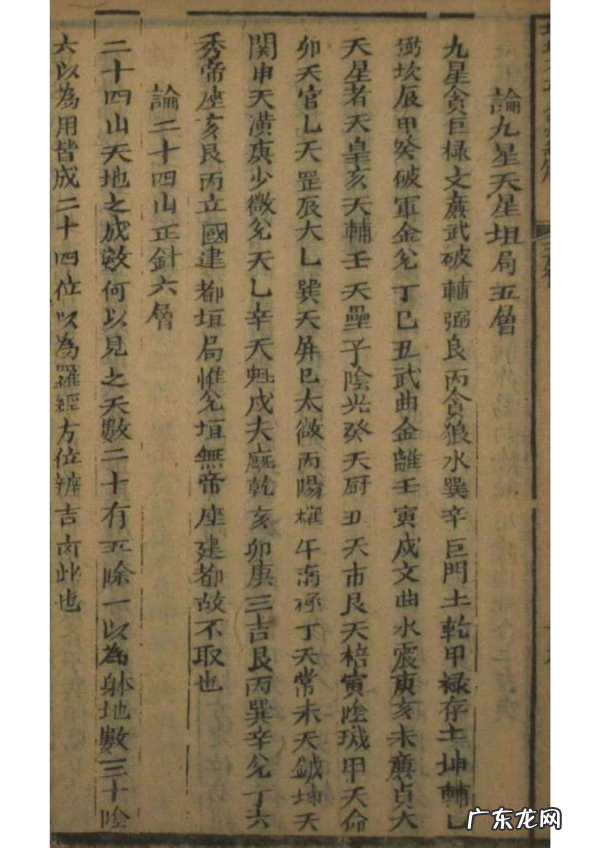 論九星天星垣局五層
九星貪巨祿文廉武破輔弼艮丙貪狼水巽辛巨門土乾甲祿存土坤輔乙
弼坎辰甲癸破軍金兌丁巳丑武曲金離壬寅戌文曲水震庚亥未廉貞火
天星者天皇亥天輔壬天壘子陰光癸天厨丑天市艮天棓寅陰璣甲天命
卯天官乙天罡辰太乙巽天屏巳太微丙陽權午南極丁天常未天鉞坤天
関申天潢庚少微兌天乙辛天魁戌天廐乾亥卯庚三吉艮丙巽辛兌丁六
秀帝座亥艮丙立國建都垣局惟兌垣無帝座建都故不取也
論二十四山正針六層
二十四山天地之成数何以見之天數二十有五除一以為躰地數三十除
六以為用皆成二十四位以為羅經方位辨吉凶此也
广东龙网